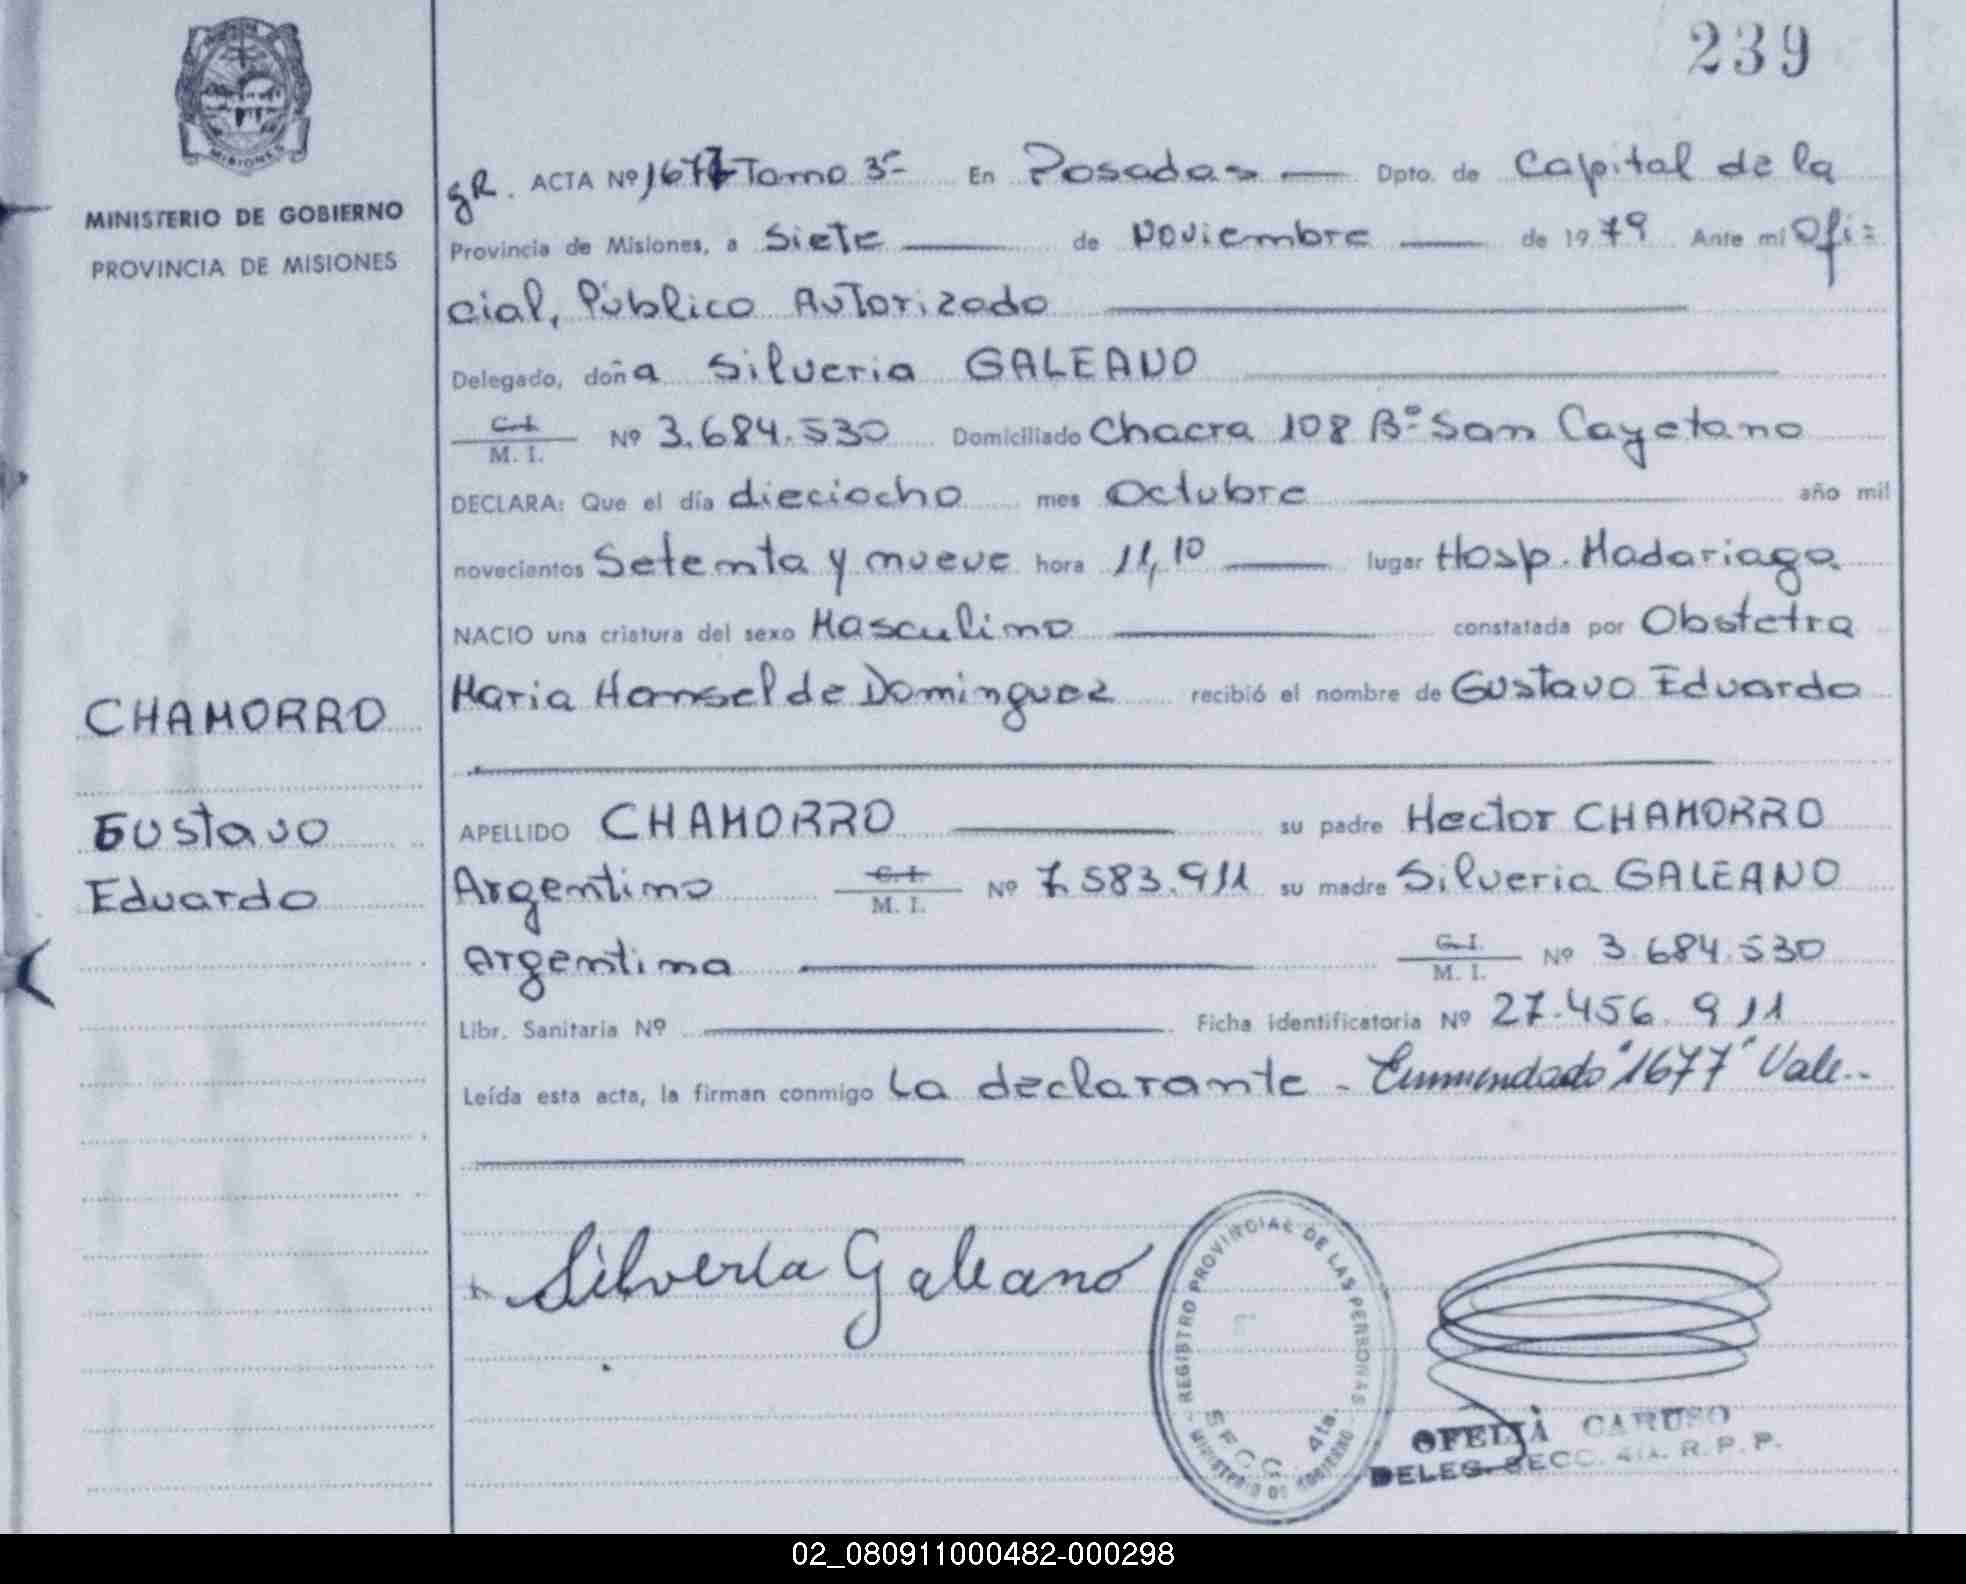 239
MISIONES
MINISTERIO DE GOBIERNO
PROVINCIA DE MISIONES
CHAMORRO
Gustavo
Eduardo
gR. ACTA Nº 1677 Tomo 3º En Posadas Dpto. de Capital de la
Provincia de Misiones, a Siete de Noviembre de 1979 Ante mi Ofi=
cial, Público Autorizado
Delegado, doña Silveria GALEANO
C.I. M. I. Nº 3.684.530 Domiciliado Chacra 108 Bº San Cayetano
DECLARA: Que el día dieciocho mes Octubre año mil
novecientos Setenta y nueve hora 11,10 lugar Hosp. Madariaga
NACIO una criatura del sexo Masculino constatada por Obstetra
Maria Hansel de Dominguez recibió el nombre de Gustavo Eduardo
APELLIDO CHAMORRO su padre Hector CHAMORRO
Argentino C.I. M. I. Nº 7.583.911 su madre Silveria GALEANO
Argentina C.I. M. I. Nº 3.684.530
Libr. Sanitaria Nº Ficha identificatoria Nº 27.456.911
Leída esta acta, la firman conmigo La declarante - Enmendado "1677" Vale.-
Silveria Galeano
REGISTRO PROVINCIAL DE LAS PERSONAS
SECC. 4ta.
MINISTERIO DE GOBIERNO
OFELIA CARUSO
DELEG. SECC. 4ta. R. P. P.
02_080911000482-000298